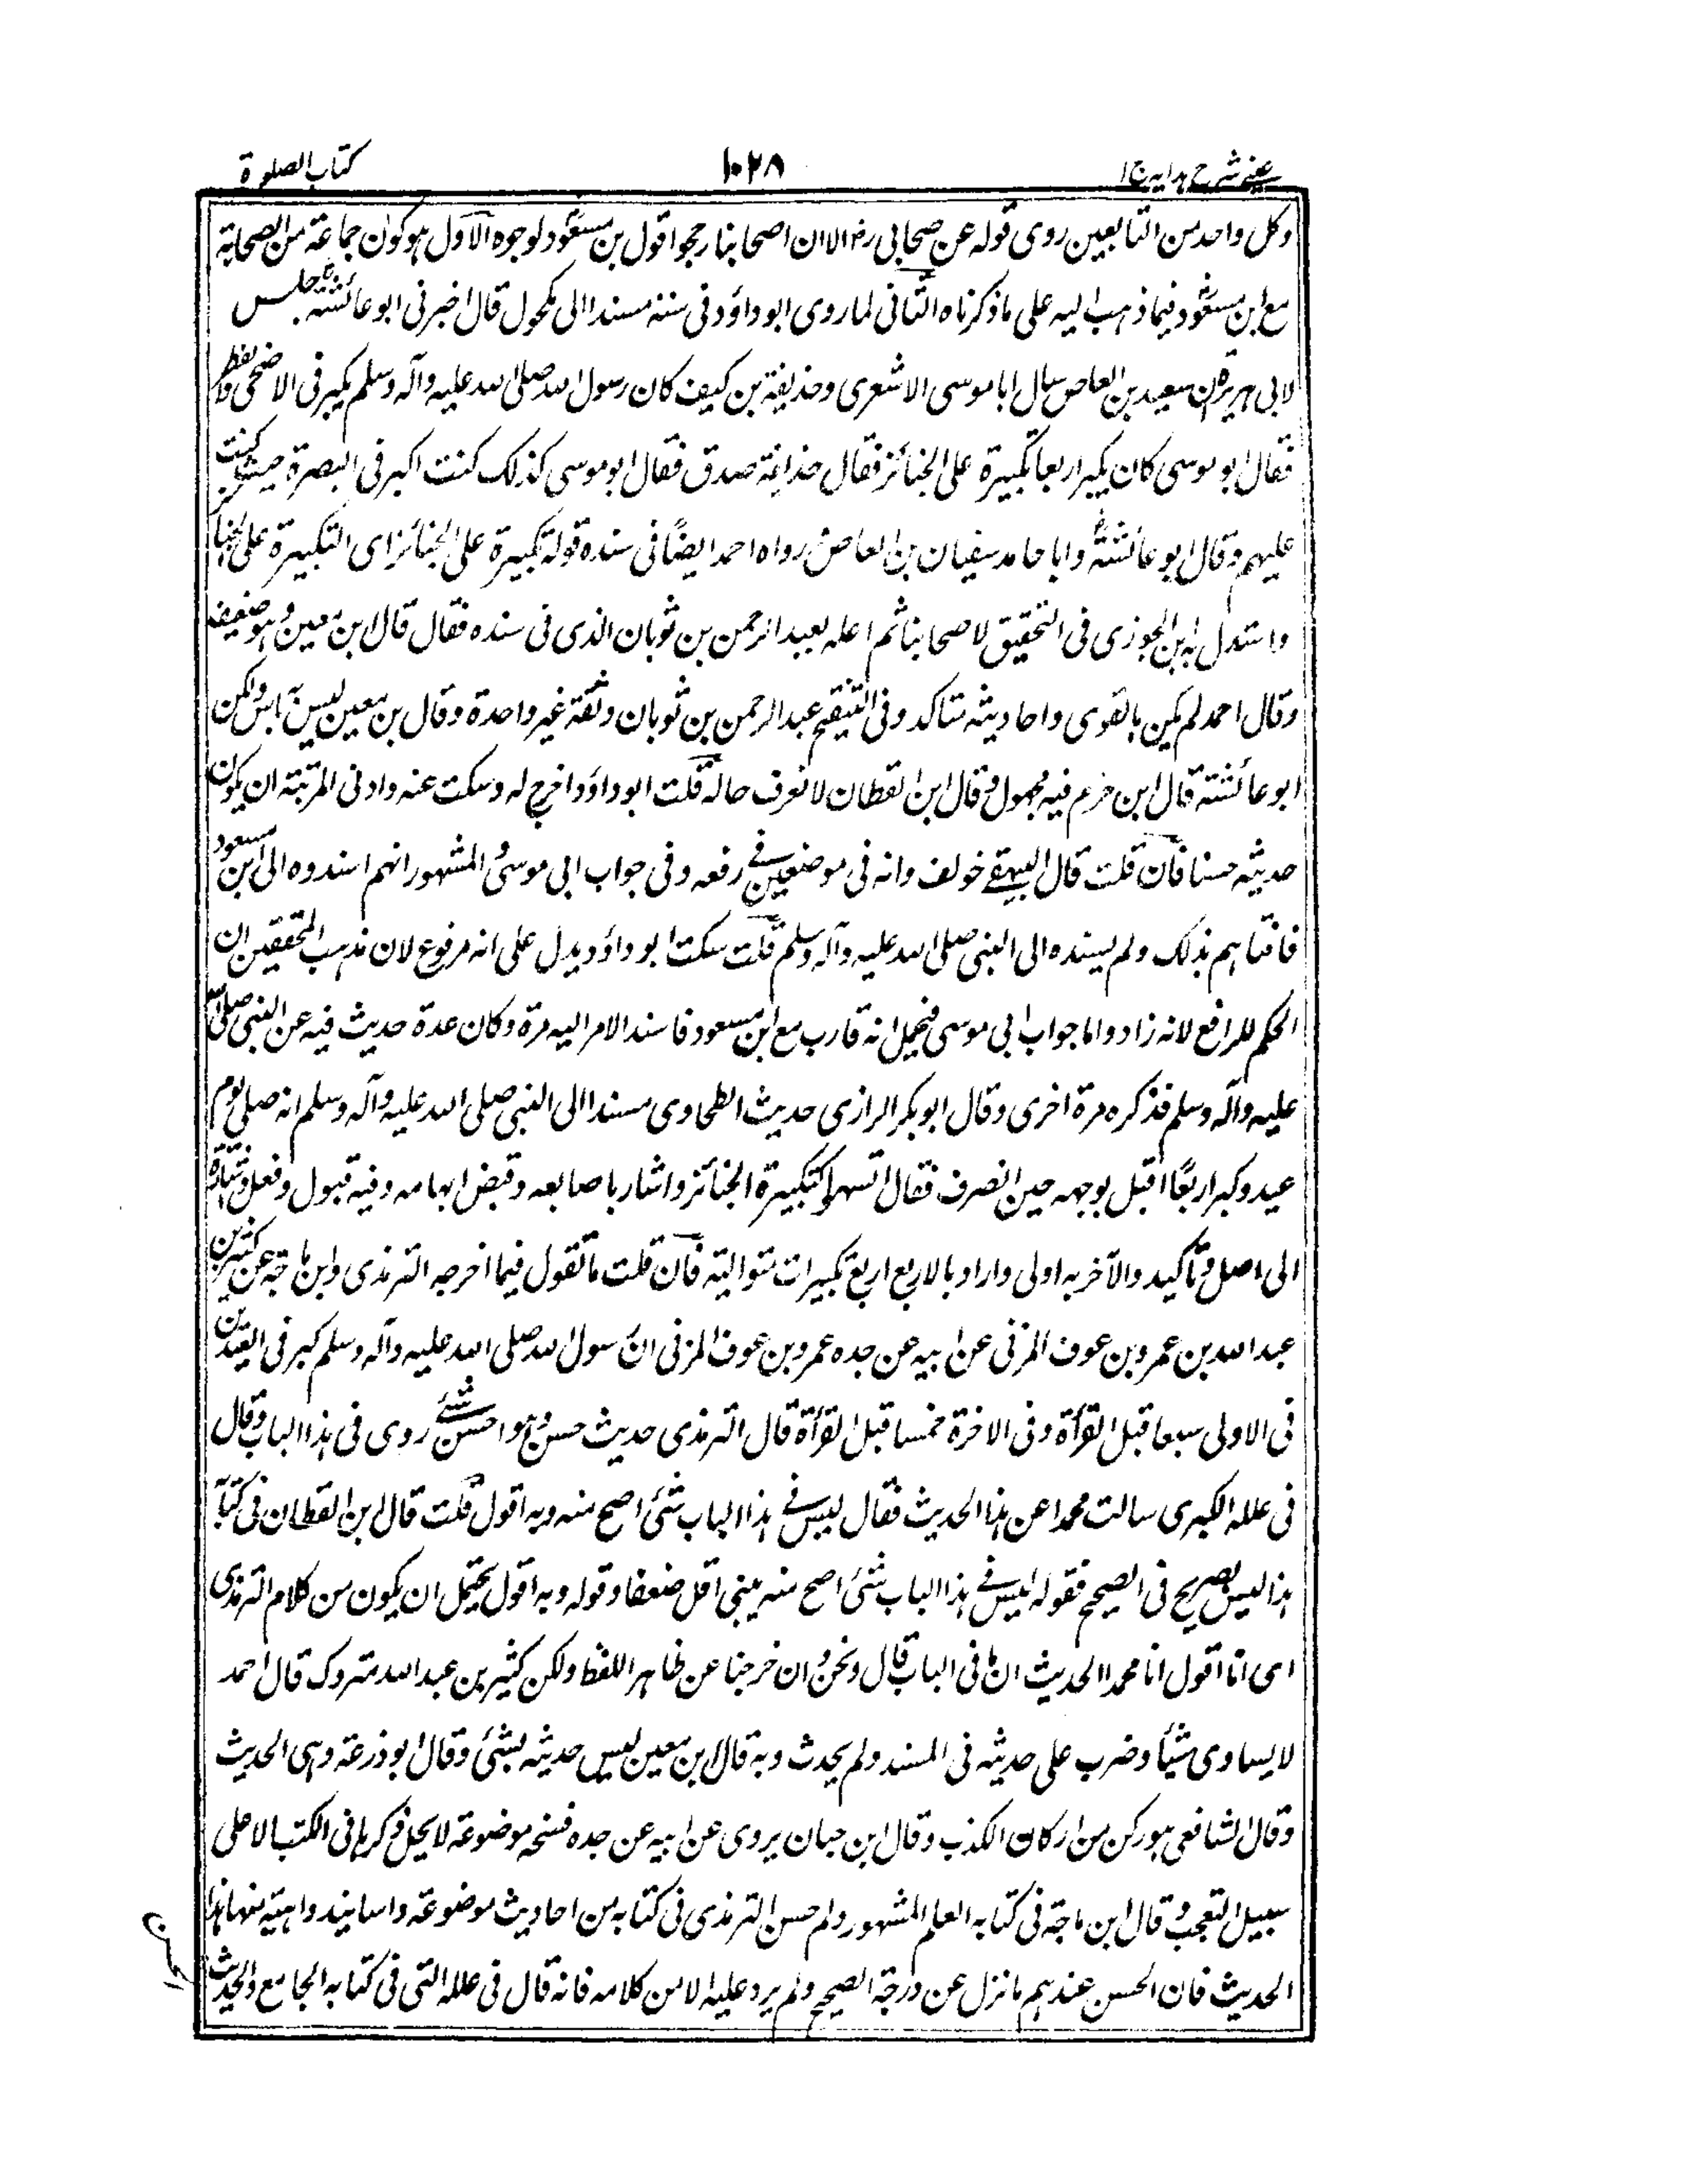 عینی شرح ہدایہ ج ۱
۱۰۲۸
کتاب الصلوة
وکل واحد من التابعین روی قوله عن صحابی رض الا ان اصحابنا رجحوا قول بن مسعود لوجوه الاول ہو کون جماعة من الصحابة
مع ابن مسعود فیما ذہب الیه علی ما ذکرناه الثانی لما روی ابو داؤد فی سننه مسندا الی مکحول قال اخبرنی ابو عائشة جلیس
لابی ہریرة ان سعید بن العاص سال ابا موسی الاشعری وحذیفة بن کیف کان رسول الله صلی الله علیه وآله وسلم یکبر فی الاضحی والفطر
فقال ابو موسی کان یکبر اربعا تکبیرة علی الجنائز فقال حذیفة صدق فقال ابو موسی کذلک کنت اکبر فی البصرة حیث کنت
علیہم وقال ابو عائشة وانا حامد سفیان بن العاص رواه احمد ایضًا فی سنده قوله تکبیرة علی الجنائز ای التکبیرة علی الجنائز
واستدل به ابن الجوزی فی التحقیق لاصحابنا ثم اعله بعبد الرحمن بن ثوبان الذی فی سنده فقال قال ابن معین وہو ضعیف
وقال احمد لم یکن بالقوی واحادیثه مناکد وفی التنقیح عبد الرحمن بن ثوبان وثقة غیر واحدة وقال بن معین لیس به باس ولکن
ابو عائشة قال ابن حزم فیه مجہول وقال ابن القطان لا نعرف حاله قلت ابو داؤد اخرج له وسکت عنه وادنی المرتبة ان یکون
حدیثه حسنا فان قلت قال البیہقے خولف وانه فی موضعین فے رفعه وفی جواب ابی موسیٰ والمشہور انہم اسندوه الی ابن مسعود
فافتاہم بذلک ولم یسنده الی النبی صلی الله علیه وآله وسلم قلت سکت ابو داؤد یدل علی انه مرفوع لان مذہب المحققین ان
الحکم للرافع لانه زاد واما جواب ابی موسی فیحمل انه قارب مع ابن مسعود فاسند الامر الیه مرة وکان عدة حدیث فیه عن النبی صلی الله
علیه وآله وسلم فذکره مرة اخری وقال ابو بکر الرازی حدیث الطحاوی مسندا الی النبی صلی الله علیه وآله وسلم انه صلی یوم
عید وکبر اربعًا اقبل بوجہه حین انصرف فقال لا تسہوا کتکبیرة الجنائز واشار باصابعه وقبض ابہامه وفیه قبول وفعل واشارة
الی اصل وتاکید والآخر به اولی واراد بالاربع اربع تکبیرات متوالیة فان قلت ما تقول فیما اخرجه الترمذی وابن ماجة عن کثیر بن
عبد الله بن عمرو بن عوف المزنی عن ابیه عن جده عمرو بن عوف المزنی ان رسول الله صلی الله علیه وآله وسلم کبر فی العیدین
فی الاولی سبعا قبل القرأة وفی الاخرة خمسا قبل القرأة قال الترمذی حدیث حسن وہو احسن شئے روی فی ہذا الباب وقال
فی علله الکبری سالت محمدا عن ہذا الحدیث فقال لیس فے ہذا الباب شئ اصح منه وبه اقول قلت قال ابن القطان فی کتابه
ہذا لیس بصریح فی الصحیح فقوله لیس فے ہذا الباب شئ اصح منه یعنی اقل ضعفا وقوله وبه اقول یحتمل ان یکون من کلام الترمذی
ای انا اقول انا محمدا الحدیث ان ما فی الباب قال ونحن وان خرجنا عن ظاہر اللفظ ولکن کثیر بن عبد الله متروک قال احمد
لا یساوی شیأ وضرب علی حدیثه فی المسند ولم یحدث وبه قال ابن معین لیس حدیثه بشئ وقال ابو ذرعة وہی الحدیث
وقال الشافعی ہو رکن من ارکان الکذب وقال ابن حبان یروی عن ابیه عن جده نسخه موضوعة لا یحل ذکرہا فی الکتب الا علی
سبیل التعجب وقال ابن ماجة فی کتابه العلم المشہور ولم حسن الترمذی فی کتابه من احادیث موضوعة واسانید واہیة منہا ہذا
الحدیث فان الحسن عندہم ما نزل عن درجة الصحیح ولم یرد علیه الا من کلامه فانه قال فی علله التی فی کتابه الجامع والحدیث
الحسن